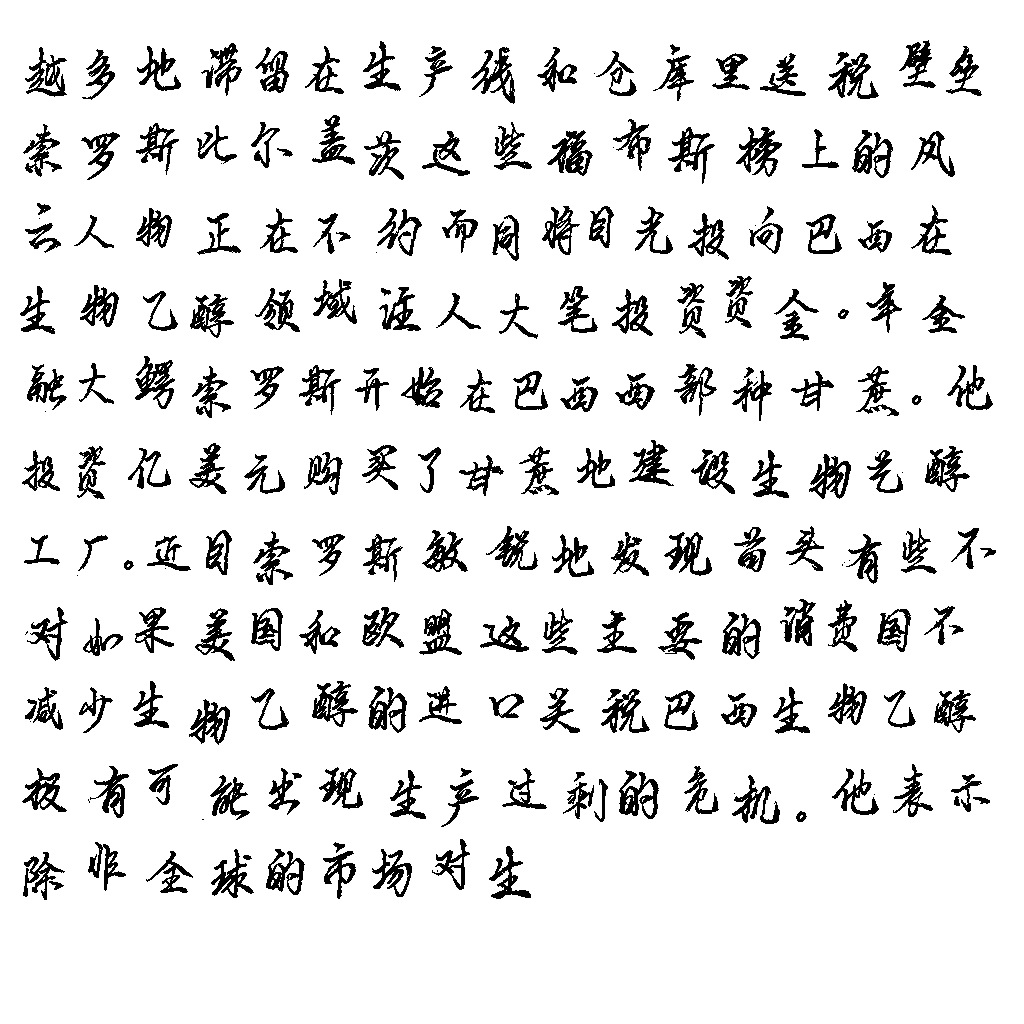 越多地滞留在生产线和仓库里送税壁垒
索罗斯比尔盖茨这些福布斯榜上的风
云人物正在不约而同将目光投向巴西在
生物乙醇领域注人大笔投资资金。年金
融大鳄索罗斯开始在巴西西部种甘蔗。他
投资亿美元购买了甘蔗地建设生物乙醇
工厂。近目索罗斯敏锐地发现苗头有些不
对如果美国和欧盟这些主要的消费国不
减少生物乙醇的进口关税巴西生物乙醇
极有可能出现生产过剩的危机。他表示
除非全球的市场对生